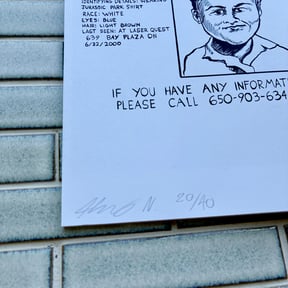 IDENTIFYING DETAILS: WEARING
JURASSIC PARK SHIRT
RACE: WHITE
EYES: BLUE
HAIR: LIGHT BROWN
LAST SEEN: AT LASER QUEST
639 BAY PLAZA ON
6/22/2000
IF YOU HAVE ANY INFORMATI
PLEASE CALL 650-903-634
N 20/40